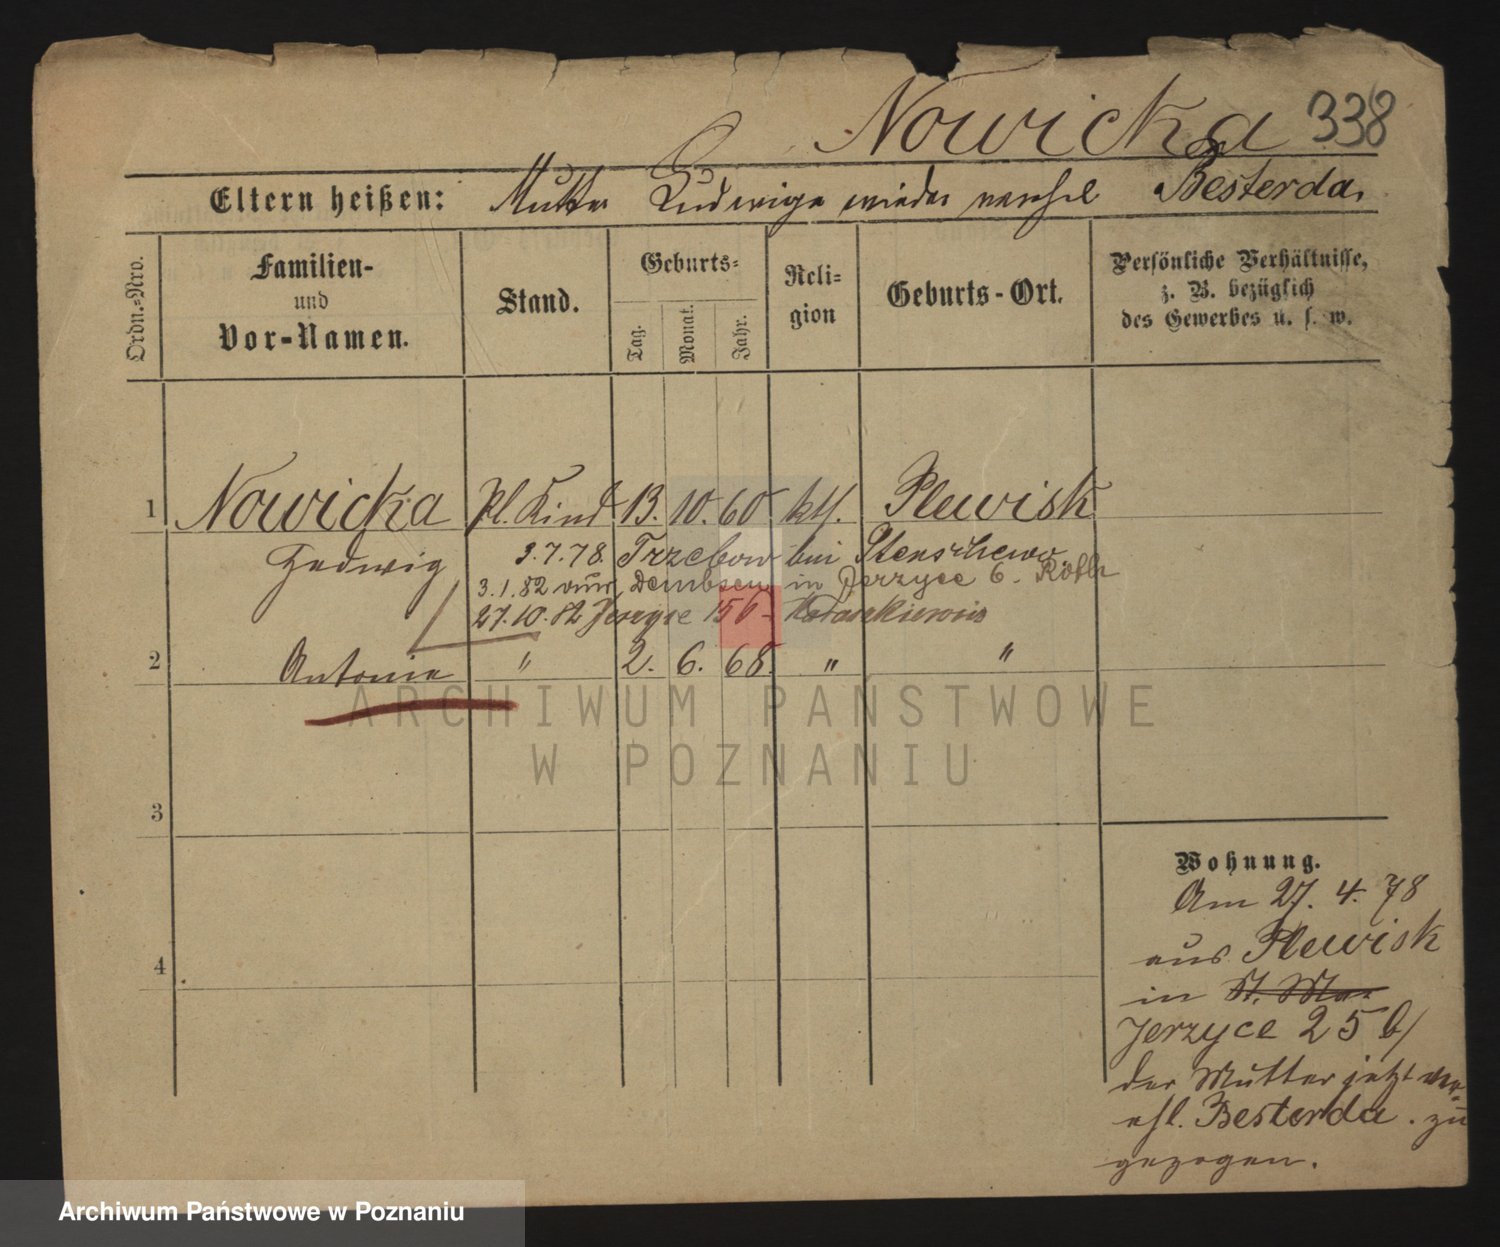 Nowicka 338
Eltern heißen: Mutter Ludwiga wieder verehel Besterda.
Ordn.-Nro.
Familien-
und
Vor-Namen.
Stand.
Geburts-
Tag.
Monat.
Jahr.
Reli-
gion
Geburts-Ort.
Persönliche Verhältnisse,
z. B. bezüglich
des Gewerbes u. s. w.
1 Nowicka Pl. Kind 13. 10. 60 kth. Plewisk
Hedwig 3.7.78. Trzebow bei Stenschewo
3.1.82 aus Dembsen in Jerzyce 6. Köhlr
27.10.82 Jerzyce 156
2 Antonie " 2. 6. 68. " "
3
4
Wohnung.
Am 27. 4. 78
aus Plewisk
in St. Mar
Jerzyce 25 b/
der Mutter jetzt ver-
ehl. Besterda. zu
gezogen.
ARCHIWUM PAŃSTWOWE
W POZNANIU
Archiwum Państwowe w Poznaniu